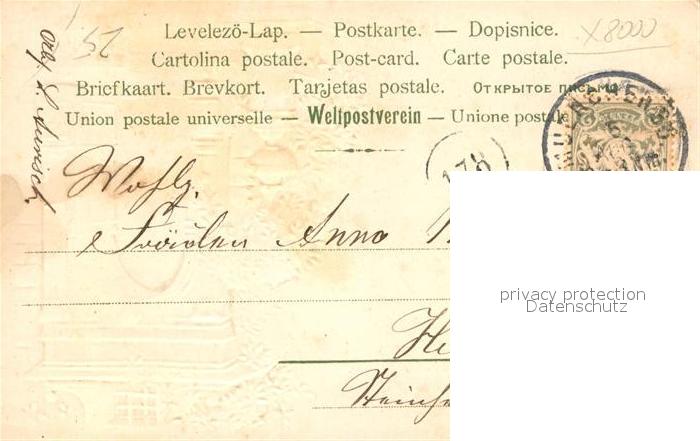 Levelezö-Lap. — Postkarte. — Dopisnice.
Cartolina postale. Post-card. Carte postale.
Briefkaart. Brevkort. Tarjetas postale. Открытое письмо
Union postale universelle — Weltpostverein — Unione postale
52
X8000
178
Wohlg.
Fräulen Anna
He
Steinh
privacy protection
Datenschutz